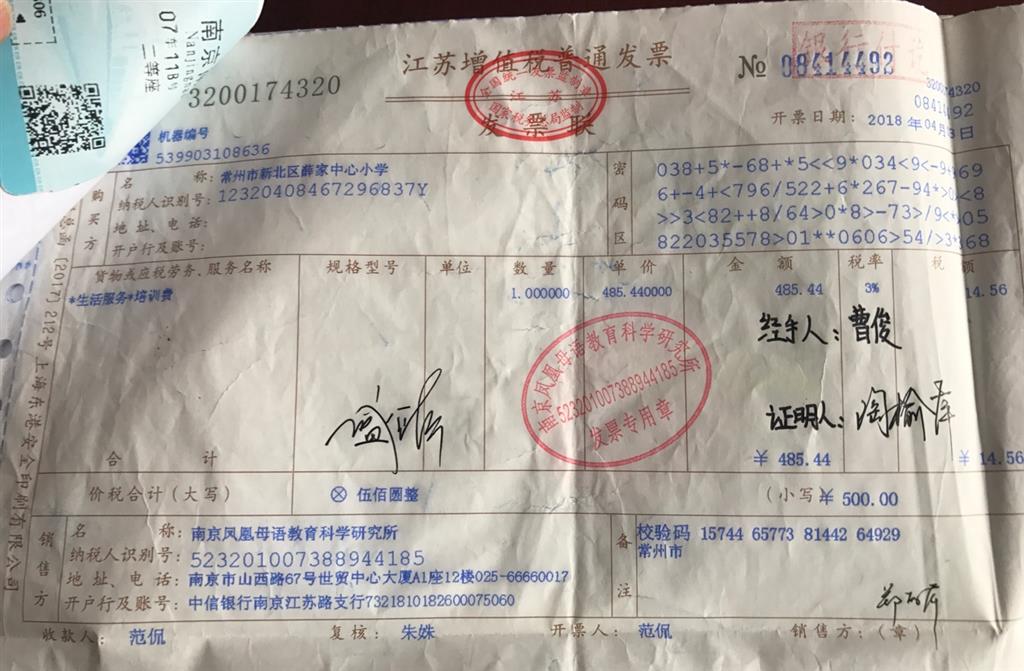 南京
Nanjing
07车11B号
二等座
3200174320
江苏增值税普通发票
发票联
全国统一发票监制章
江苏
国家税务局监制
银行付讫
№ 08414492
3200174320
08414492
开票日期: 2018年04月
机器编号
539903108636
购买方
名 称: 常州市新北区薛家中心小学
纳税人识别号: 12320408467296837Y
地址、电话:
开户行及账号:
密码区
038+5*-68+*5<<9*034<9<-9+69
6+-4+<796/522+6*267-94*>0<8
>>3<82++8/64>0*8>-73>/9<*05
822035578>01**0606>54/>3*68
货物或应税劳务、服务名称 规格型号 单位 数量 单价 金额 税率 税额
*生活服务*培训费 1.000000 485.440000 485.44 3% 14.56
经手人: 曹俊
南京凤凰母语教育科学研究所
523201007388944185
发票专用章
证明人:
合 计 ¥ 485.44 ¥ 14.56
价税合计(大写) ⊗ 伍佰圆整 (小写) ¥ 500.00
销售方
名 称: 南京凤凰母语教育科学研究所
纳税人识别号: 523201007388944185
地址、电话: 南京市山西路67号世贸中心大厦A1座12楼025-66660017
开户行及账号: 中信银行南京江苏路支行7321810182600075060
备注
校验码 15744 65773 81442 64929
常州市
收款人: 范侃 复核: 朱姝 开票人: 范侃 销售方:(章)
总函〔2017〕212号上海东港安全印刷有限公司